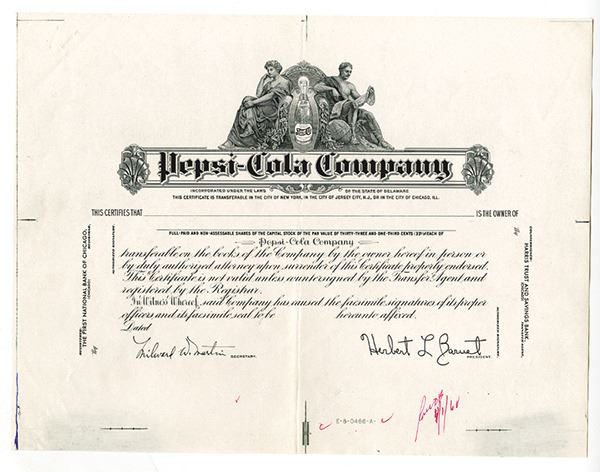 Pepsi-Cola Company
INCORPORATED UNDER THE LAWS OF THE STATE OF DELAWARE
THIS CERTIFICATE IS TRANSFERABLE IN THE CITY OF NEW YORK, IN THE CITY OF JERSEY CITY, N.J., OR IN THE CITY OF CHICAGO, ILL.
THIS CERTIFIES THAT IS THE OWNER OF
FULL-PAID AND NON-ASSESSABLE SHARES OF THE CAPITAL STOCK OF THE PAR VALUE OF THIRTY-THREE AND ONE-THIRD CENTS (33⅓¢) EACH OF
Pepsi-Cola Company
transferable on the books of the Company by the owner hereof in person or
by duly authorized attorney upon surrender of this Certificate properly endorsed.
This Certificate is not valid unless countersigned by the Transfer Agent and
registered by the Registrar.
In Witness Whereof, said Company has caused the facsimile signatures of its proper
officers and its facsimile seal to be hereunto affixed.
Dated
Milward W. Martin
SECRETARY.
Herbert L Barnet
PRESIDENT.
THE FIRST NATIONAL BANK OF CHICAGO,
(CHICAGO)
By
HARRIS TRUST AND SAVINGS BANK,
(CHICAGO)
By
E-8-0466-A-